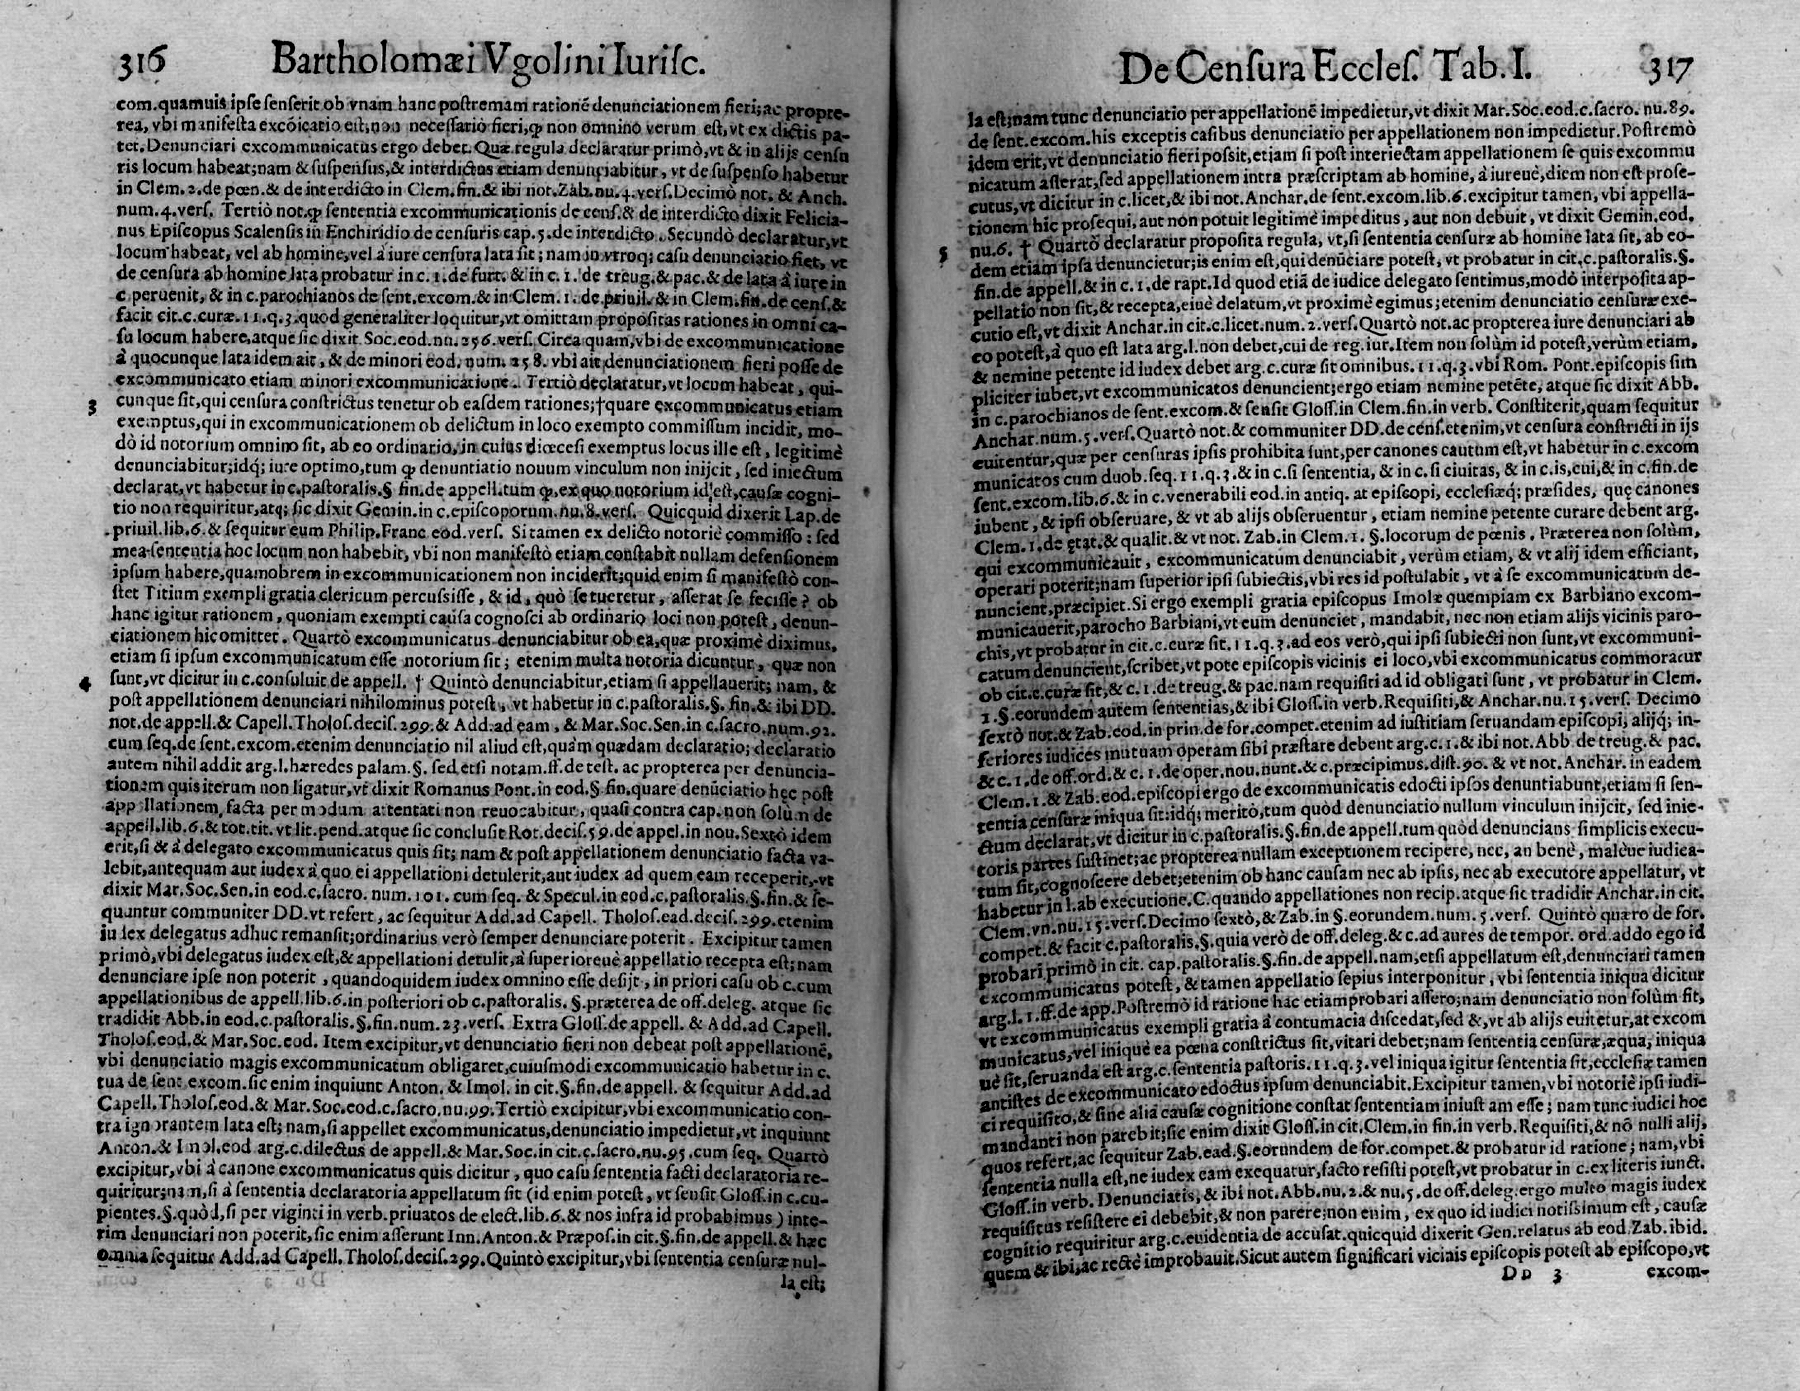 316 Bartholomæi Vgolini Iurisc.
com.quamuis ipse senserit ob vnam hanc postremam rationē denunciationem fieri;ac propte-
rea, vbi manifesta excōicatio est,non necessariò fieri,ꝙ non omnino verum est,vt ex dictis pa-
tet.Denunciari excommunicatus ergo debet.Quæ regula declaratur primò,vt & in alijs censu
ris locum habeat;nam & suspensus,& interdictus etiam denunciabitur, vt de suspenso habetur
in Clem.2.de pœn.& de interdicto in Clem.fin.& ibi not.Zab.nu.4.vers.Decimò not. & Anch.
num.4.vers. Tertiò not.ꝙ sententia excommunicationis de cens.& de interdicto dixit Felicia-
nus Episcopus Scalensis in Enchiridio de censuris cap.5.de interdicto.Secundò declaratur,vt
locum habeat, vel ab homine,vel à iure censura lata sit; nam in vtroq; casu denunciatio fiet, vt
de censura ab homine lata probatur in c.1.de furt.& in c.1.de treug.& pac.& de lata à iure in
c.peruenit, & in c.parochianos de sent.excom.& in Clem.1.de priuil.& in Clem.fin.de cens.&
facit cit.c.curæ.11.q.3.quod generaliter loquitur,vt omittam propositas rationes in omni ca-
su locum habere,atque sic dixit Soc.eod.nu.256.vers.Circa quam,vbi de excommunicatione
à quocunque lata idem ait, & de minori eod. num. 258. vbi ait denunciationem fieri posse de
excommunicato etiam minori excommunicatione. Tertiò declaratur,vt locum habeat, qui-
3 cunque sit,qui censura constrictus tenetur ob easdem rationes;†quare excommunicatus etiam
exemptus,qui in excommunicationem ob delictum in loco exempto commissum incidit, mo-
dò id notorium omnino sit, ab eo ordinario,in cuius diœcesi exemptus locus ille est, legitimè
denunciabitur;idq; iure optimo,tum ꝙ denuntiatio nouum vinculum non inijcit, sed iniectum
declarat,vt habetur in c.pastoralis.§ fin.de appell.tum ꝙ,ex quo notorium id est,causæ cogni-
tio non requiritur,atq; sic dixit Gemin.in c.episcoporum.nu.8.vers. Quicquid dixerit Lap.de
priuil.lib.6.& sequitur eum Philip.Franc eod.vers. Si tamen ex delicto notoriè commisso: sed
mea sententia hoc locum non habebit, vbi non manifestò etiam constabit nullam defensionem
ipsum habere,quamobrem in excommunicationem non inciderit;quid enim si manifestò con-
stet Titium exempli gratia clericum percussisse, & id, quò se tueretur, asserat se fecisse? ob
hanc igitur rationem, quoniam exempti causa cognosci ab ordinario loci non potest, denun-
ciationem hic omittet. Quartò excommunicatus denunciabitur ob ea,quæ proximè diximus,
etiam si ipsum excommunicatum esse notorium sit; etenim multa notoria dicuntur, quæ non
4 sunt,vt dicitur in c.consuluit.de appell. † Quintò denunciabitur,etiam si appellauerit; nam, &
post appellationem denunciari nihilominus potest, vt habetur in c.pastoralis.§. fin.& ibi DD.
not.de appell.& Capell.Tholos.decis.299.& Add.ad eam, & Mar.Soc.Sen.in c.sacro.num.92.
cum seq.de sent.excom.etenim denunciatio nil aliud est,quàm quædam declaratio; declaratio
autem nihil addit arg.l.hæredes palam.§. sed etsi notam.ff.de test. ac propterea per denuncia-
tionem quis iterum non ligatur,vt dixit Romanus Pont.in eod.§.fin.quare denūciatio hęc post
appellationem facta per modum attentati non reuocabitur, quasi contra cap.non solùm de
appell.lib.6.& tot.tit. vt lit.pend.atque sic conclusit Rot.decis.59.de appel.in nou.Sextò idem
erit,si & à delegato excommunicatus quis sit; nam & post appellationem denunciatio facta va-
lebit,antequam aut iudex à quo ei appellationi detulerit,aut iudex ad quem eam receperit, vt
dixit Mar.Soc.Sen.in eod.c.sacro. num.101. cum seq. & Specul.in eod.c.pastoralis.§.fin.& se-
quuntur communiter DD.vt refert, ac sequitur Add.ad Capell. Tholos.ead.decis.299.etenim
iudex delegatus adhuc remansit;ordinarius verò semper denunciare poterit. Excipitur tamen
primò,vbi delegatus iudex est,& appellationi detulit,à superioreuè appellatio recepta est;nam
denunciare ipse non poterit, quandoquidem iudex omnino esse desijt, in priori casu ob c.cum
appellationibus de appell.lib.6.in posteriori ob c.pastoralis. §.præterea de off.deleg. atque sic
tradidit Abb.in eod.c.pastoralis.§.fin.num.23.vers. Extra Gloss.de appell. & Add.ad Capell.
Tholos.eod.& Mar.Soc.eod. Item excipitur,vt denunciatio fieri non debeat post appellationē,
vbi denunciatio magis excommunicatum obligaret,cuiusmodi excommunicatio habetur in c.
tua de sent excom.sic enim inquiunt Anton. & Imol. in cit.§.fin.de appell. & sequitur Add.ad
Capell.Tholos.eod.& Mar.Soc.eod.c.sacro.nu.99.Tertiò excipitur,vbi excommunicatio con-
tra ignorantem lata est; nam,si appellet excommunicatus,denunciatio impedietur,vt inquiunt
Anton.& Imol.eod arg.c.dilectus de appell.& Mar.Soc.in cit.c.sacro.nu.95.cum seq. Quartò
excipitur,vbi à canone excommunicatus quis dicitur, quo casu sententia facti declaratoria re-
quiritur;nam,si à sententia declaratoria appellatum sit (id enim potest, vt sensit Gloss.in c.cu-
pientes.§.quòd,si per viginti in verb.priuatos de elect.lib.6.& nos infra id probabimus) inte-
rim denunciari non poterit, sic enim asserunt Inn.Anton.& Præpos.in cit.§.fin.de appell.& hæc
omnia sequitur Add.ad Capell.Tholos.decis.299.Quintò excipitur,vbi sententia censuræ nul-
la est;
De Censura Eccles. Tab.I. 317
la est;nam tunc denunciatio per appellationē impedietur,vt dixit Mar.Soc.eod.c.sacro.nu.89.
de sent.excom.his exceptis casibus denunciatio per appellationem non impedietur.Postremò
idem erit,vt denunciatio fieri possit,etiam si post interiectam appellationem se quis excommu
nicatum asserat,sed appellationem intra præscriptam ab homine, à iureuè,diem non est prose-
cutus,vt dicitur in c.licet,& ibi not.Anchar.de sent.excom.lib.6.excipitur tamen, vbi appella-
tionem hic prosequi, aut non potuit legitimè impeditus, aut non debuit, vt dixit Gemin.eod.
5 nu.6. † Quartò declaratur proposita regula, vt,si sententia censuræ ab homine lata sit, ab eo-
dem etiam ipsa denuncietur;is enim est,qui denūciare potest, vt probatur in cit.c.pastoralis.§.
fin.de appell.& in c.1.de rapt.Id quod etiā de iudice delegato sentimus,modò interposita ap-
pellatio non sit,& recepta,eiuè delatum,vt proximè egimus;etenim denunciatio censuræ exe-
cutio est,vt dixit Anchar.in cit.c.licet.num.2.vers.Quartò not.ac propterea iure denunciari ab
eo potest,à quo est lata arg.l.non debet,cui de reg.iur.Item non solùm id potest,verùm etiam,
& nemine petente id iudex debet arg.c.curæ sit omnibus.11.q.3.vbi Rom. Pont.episcopis sim
pliciter iubet,vt excommunicatos denuncient;ergo etiam nemine petēte; atque sic dixit Abb.
in c.parochianos de sent.excom.& sensit Gloss.in Clem.fin.in verb. Constiterit,quam sequitur
Anchar.num.5.vers.Quartò not.& communiter DD.de cens.etenim,vt censura constricti in ijs
euitentur,quæ per censuras ipsis prohibita sunt,per canones cautum est,vt habetur in c.excom
municatos cum duob.seq.11.q.3.& in c.si sententia, & in c.si ciuitas, & in c.is,cui,& in c.fin.de
sent.excom.lib.6.& in c.venerabili eod.in antiq. at episcopi, ecclesiæq; præsides, quę canones
iubent, & ipsi obseruare, & vt ab alijs obseruentur, etiam nemine petente curare debent arg.
Clem.1.de ętat.& qualit.& vt not. Zab.in Clem.1. §.locorum de pœnis. Præterea non solùm,
qui excommunicauit, excommunicatum denunciabit, verùm etiam, & vt alij idem efficiant,
operari poterit;nam superior ipsi subiectis,vbi res id postulabit, vt à se excommunicatum de-
nuncient,præcipiet.Si ergo exempli gratia episcopus Imolæ quempiam ex Barbiano excom-
municauerit,parocho Barbiani,vt eum denunciet, mandabit, nec non etiam alijs vicinis paro-
chis,vt probatur in cit.c.curæ sit.11.q.3.ad eos verò,qui ipsi subiecti non sunt,vt excommuni-
catum denuncient,scribet,vt pote episcopis vicinis ei loco,vbi excommunicatus commoratur
ob cit.c.curæ sit,& c.1.de treug.& pac.nam requisiti ad id obligati sunt, vt probatur in Clem.
1.§.eorundem autem sententias,& ibi Gloss.in verb.Requisiti,& Anchar.nu.15.vers. Decimo
sextò not.& Zab.eod.in prin.de for.compet.etenim ad iustitiam seruandam episcopi, alijq; in-
feriores iudices mutuam operam sibi præstare debent arg.c.1.& ibi not.Abb.de treug.& pac.
& c.1.de off.ord.& c.1.de oper.nou.nunt.& c.præcipimus.dist.90. & vt not.Anchar.in eadem
Clem.1.& Zab.eod.episcopi ergo de excommunicatis edocti ipsos denuntiabunt,etiam si sen-
tentia censuræ iniqua sit:idq; meritò,tum quòd denunciatio nullum vinculum inijcit, sed inie-
ctum declarat,vt dicitur in c.pastoralis.§.fin.de appell.tum quòd denuncians simplicis execu-
toris partes sustinet;ac propterea nullam exceptionem recipere, nec, an benè, malèue iudica-
tum sit,cognoscere debet;etenim ob hanc causam nec ab ipsis, nec ab executore appellatur, vt
habetur in l.ab executione.C.quando appellationes non recip.atque sic tradidit Anchar.in cit.
Clem.vn.nu.15.vers.Decimo sextò,& Zab.in §.eorundem.num.5.vers. Quintò quæro de for.
compet.& facit c.pastoralis.§.quia verò de off.deleg.& c.ad aures de tempor. ord.addo ego id
probari primò in cit. cap.pastoralis.§.fin.de appell.nam,etsi appellatum est,denunciari tamen
excommunicatus potest, & tamen appellatio sępius interponitur, vbi sententia iniqua dicitur
arg.l.1.ff.de app.Postremò id ratione hac etiam probari assero;nam denunciatio non solùm fit,
vt excommunicatus exempli gratia à contumacia discedat,sed &,vt ab alijs euitetur,at excom
municatus,vel iniquè ea pœna constrictus sit,vitari debet;nam sententia censuræ,æqua, iniqua
uè sit,seruanda est arg.c.sententia pastoris.11.q.3.vel iniqua igitur sententia sit,ecclesiæ tamen
antistes de excommunicato edoctus ipsum denunciabit.Excipitur tamen,vbi notoriè ipsi iudi-
ci requisito,& sine alia causæ cognitione constat sententiam iniustam esse; nam tunc iudici hoc
mandanti non parebit;sic enim dixit Gloss.in cit.Clem.in fin.in verb.Requisiti,& nō nulli alij,
quos refert,ac sequitur Zab.ead.§.eorundem de for.compet.& probatur id ratione; nam,vbi
sententia nulla est,ne iudex eam exequatur,facto resisti potest,vt probatur in c.ex literis iunct.
Gloss.in verb. Denunciatis,& ibi not.Abb.nu.2.& nu.5.de off.deleg.ergo multo magis iudex
requisitus resistere ei debebit,& non parere;non enim, ex quo id iudici notissimum est, causæ
cognitio requiritur arg.c.euidentia de accusat.quicquid dixerit Gen.relatus ab eod.Zab.ibid.
quem & ibi,ac rectè improbauit.Sicut autem significari vicinis episcopis potest ab episcopo,vt
DD 3 excom-